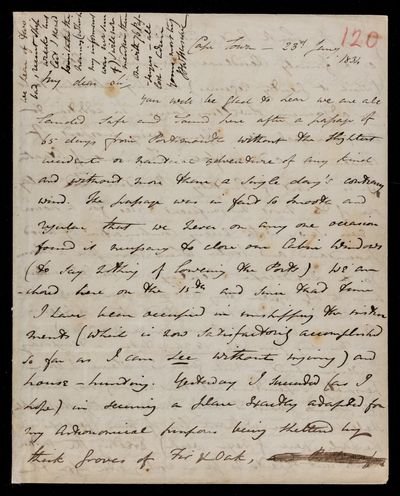 120
Cape Town - 23d Jany
1834
My dear Sir,
you will be glad to hear we are all
landed safe and sound here after a passage of
65 days from Portsmouth without the slightest
accident or nautical adventure of any kind
and without more than a single day's contrary
wind. The passage was in fact so smooth and
regular that we never on any one occasion
found it necessary to close our Cabin Windows
(to say nothing of lowering the Ports) We an
-chored here on the 15th and since that time
I have been occupied in unshipping the instru
ments (which is now satisfactorily accomplished
so far as I can see without injury) and
house-hunting. Yesterday I succeeded (as I
hope) in securing a place exactly adapted for
my Astronomical purposes being sheltered by
thick groves of Fir & Oak,